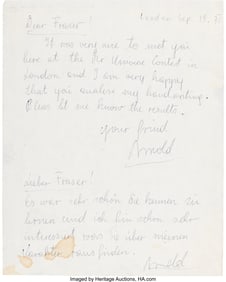 London Sep. 19,
Dear Fraser!
It was very nice to meet you
here at the Mr Univers Contest in
London and I am very happy
that you analise my handwriting.
Pleas let me know the results.
your friend
Arnold
Lieber Fraser!
Es war sehr schön Sie kennen zu
lernen und ich bin schon sehr
interessiert was Sie über meinen
Charakter rausfinden.
Arnold
Imaged by Heritage Auctions, HA.com